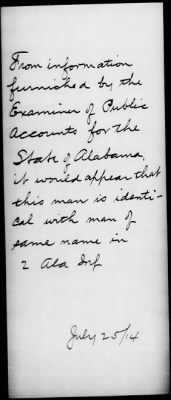 From information
furnished by the
Examiner of Public
Accounts for the
State of Alabama,
it would appear that
this man is identi-
cal with man of
same name in
2 Ala Inf
July 25/14